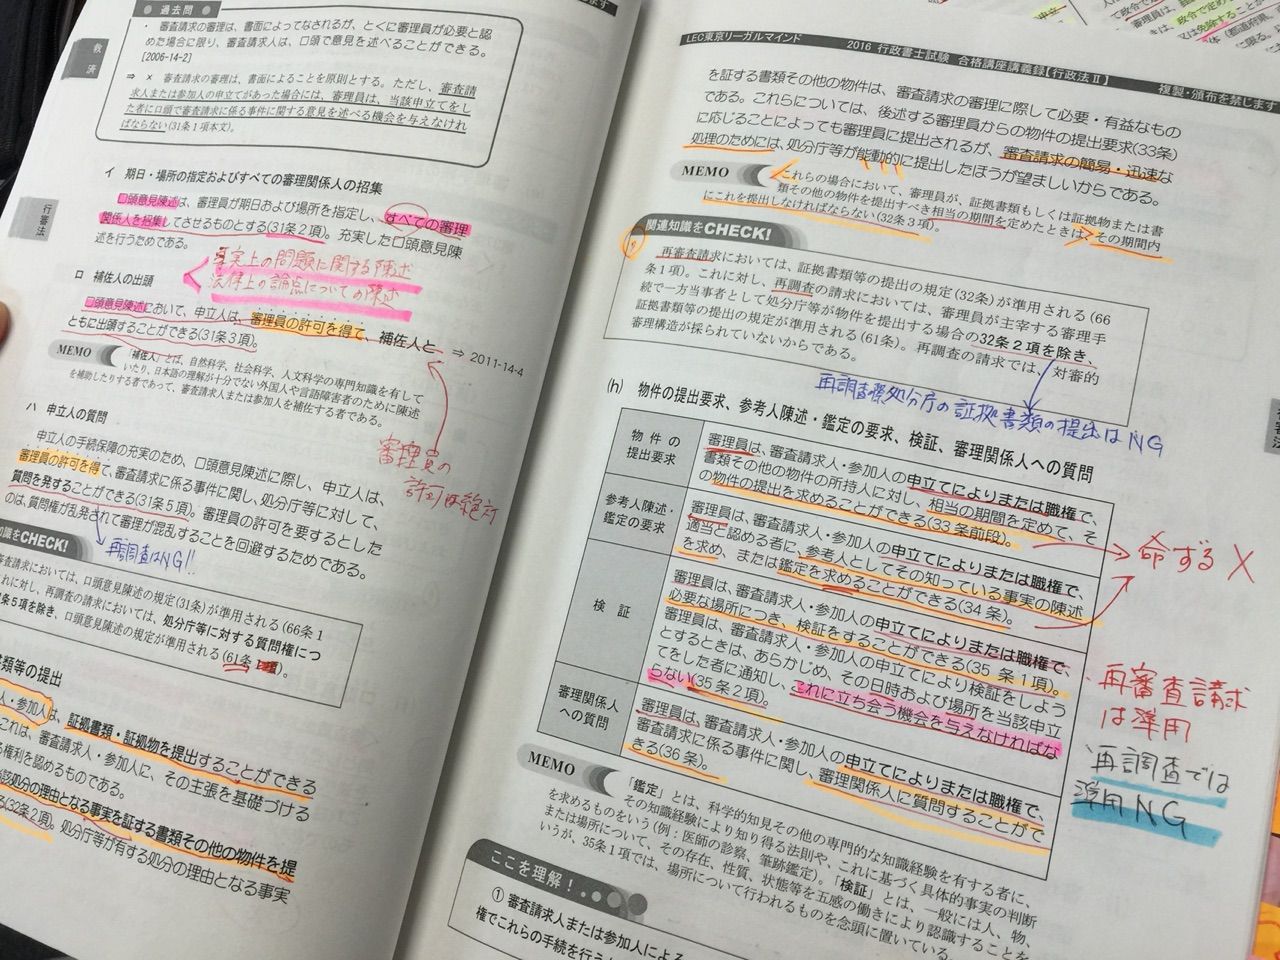 過去問
・審査請求の審理は、書面によってなされるが、とくに審理員が必要と認
めた場合に限り、審査請求人は、口頭で意見を述べることができる。
[2006-14-2]
⇒ × 審査請求の審理は、書面によることを原則とする。ただし、審査請
求人または参加人の申立てがあった場合には、審理員は、当該申立てをし
た者に口頭で審査請求に係る事件に関する意見を述べる機会を与えなけれ
ばならない(31条1項本文)。
救済
イ 期日・場所の指定およびすべての審理関係人の招集
口頭意見陳述は、審理員が期日および場所を指定し、すべての審理
関係人を招集してさせるものとする(31条2項)。充実した口頭意見陳
述を行うためである。
行審法
事実上の問題に関する陳述
法律上の論点についての陳述
ロ 補佐人の出頭
口頭意見陳述において、申立人は、審理員の許可を得て、補佐人と
ともに出頭することができる(31条3項)。
⇒ 2011-14-4
MEMO
「補佐人」とは、自然科学、社会科学、人文科学の専門知識を有して
いたり、日本語の理解が十分でない外国人や言語障害者のために陳述
を補助したりする者であって、審査請求人または参加人を補佐する者である。
審理員の
許可は絶対
ハ 申立人の質問
申立人の手続保障の充実のため、口頭意見陳述に際し、申立人は、
審理員の許可を得て、審査請求に係る事件に関し、処分庁等に対して、
質問を発することができる(31条5項)。審理員の許可を要するとした
のは、質問権が乱発されて審理が混乱することを回避するためである。
再調査はNG!!
識をCHECK!
査請求においては、口頭意見陳述の規定(31条)が準用される(66条1
れに対し、再調査の請求においては、処分庁等に対する質問権につ
条5項を除き、口頭意見陳述の規定が準用される(61条)。
類等の提出
人・参加人は、証拠書類・証拠物を提出することができる
これは、審査請求人・参加人に、その主張を基礎づける
権利を認めるものである。
処分の理由となる事実を証する書類その他の物件を提
(32条2項)。処分庁等が有する処分の理由となる事実
LEC東京リーガルマインド 2016 行政書士試験 合格講座講義録【行政法Ⅱ】
複製・頒布を禁じます
を証する書類その他の物件は、審査請求の審理に際して必要・有益なもの
である。これらについては、後述する審理員からの物件の提出要求(33条)
に応じることによっても審理員に提出されるが、審査請求の簡易・迅速な
処理のためには、処分庁等が能動的に提出したほうが望ましいからである。
MEMO
これらの場合において、審理員が、証拠書類もしくは証拠物または書
類その他の物件を提出すべき相当の期間を定めたときは、その期間内
にこれを提出しなければならない(32条3項)。
関連知識をCHECK!
再審査請求においては、証拠書類等の提出の規定(32条)が準用される(66
条1項)。これに対し、再調査の請求においては、審理員が主宰する審理手
続で一方当事者として処分庁等が物件を提出する場合の32条2項を除き、
証拠書類等の提出の規定が準用される(61条)。再調査の請求では、対審的
審理構造が採られていないからである。
再調査後処分庁の証拠書類の提出はNG
(h) 物件の提出要求、参考人陳述・鑑定の要求、検証、審理関係人への質問
物件の
提出要求
審理員は、審査請求人・参加人の申立てによりまたは職権で、
書類その他の物件の所持人に対し、相当の期間を定めて、そ
の物件の提出を求めることができる(33条前段)。
参考人陳述・
鑑定の要求
審理員は、審査請求人・参加人の申立てによりまたは職権で、
適当と認める者に、参考人としてその知っている事実の陳述
を求め、または鑑定を求めることができる(34条)。
命ずる×
検証
審理員は、審査請求人・参加人の申立てによりまたは職権で、
必要な場所につき、検証をすることができる(35条1項)。
審理員は、審査請求人・参加人の申立てにより検証をしよう
とするときは、あらかじめ、その日時および場所を当該申立
てをした者に通知し、これに立ち会う機会を与えなければな
らない(35条2項)。
審理関係人
への質問
審理員は、審査請求人・参加人の申立てによりまたは職権で、
審査請求に係る事件に関し、審理関係人に質問することがで
きる(36条)。
・再審査請求
は準用
・再調査では
準用NG
MEMO
「鑑定」とは、科学的知見その他の専門的な知識経験を有する者に、
その知識経験により知り得る法則や、これに基づく具体的事実の判断
を求めるものをいう(例：医師の診察、筆跡鑑定)。「検証」とは、一般には人、物、
または場所について、その存在、性質、状態等を五感の働きにより認識することを
いうが、35条1項では、場所について行われるものを念頭に置いている。
ここを理解!
① 審査請求人または参加人による
権でこれらの手続を行う